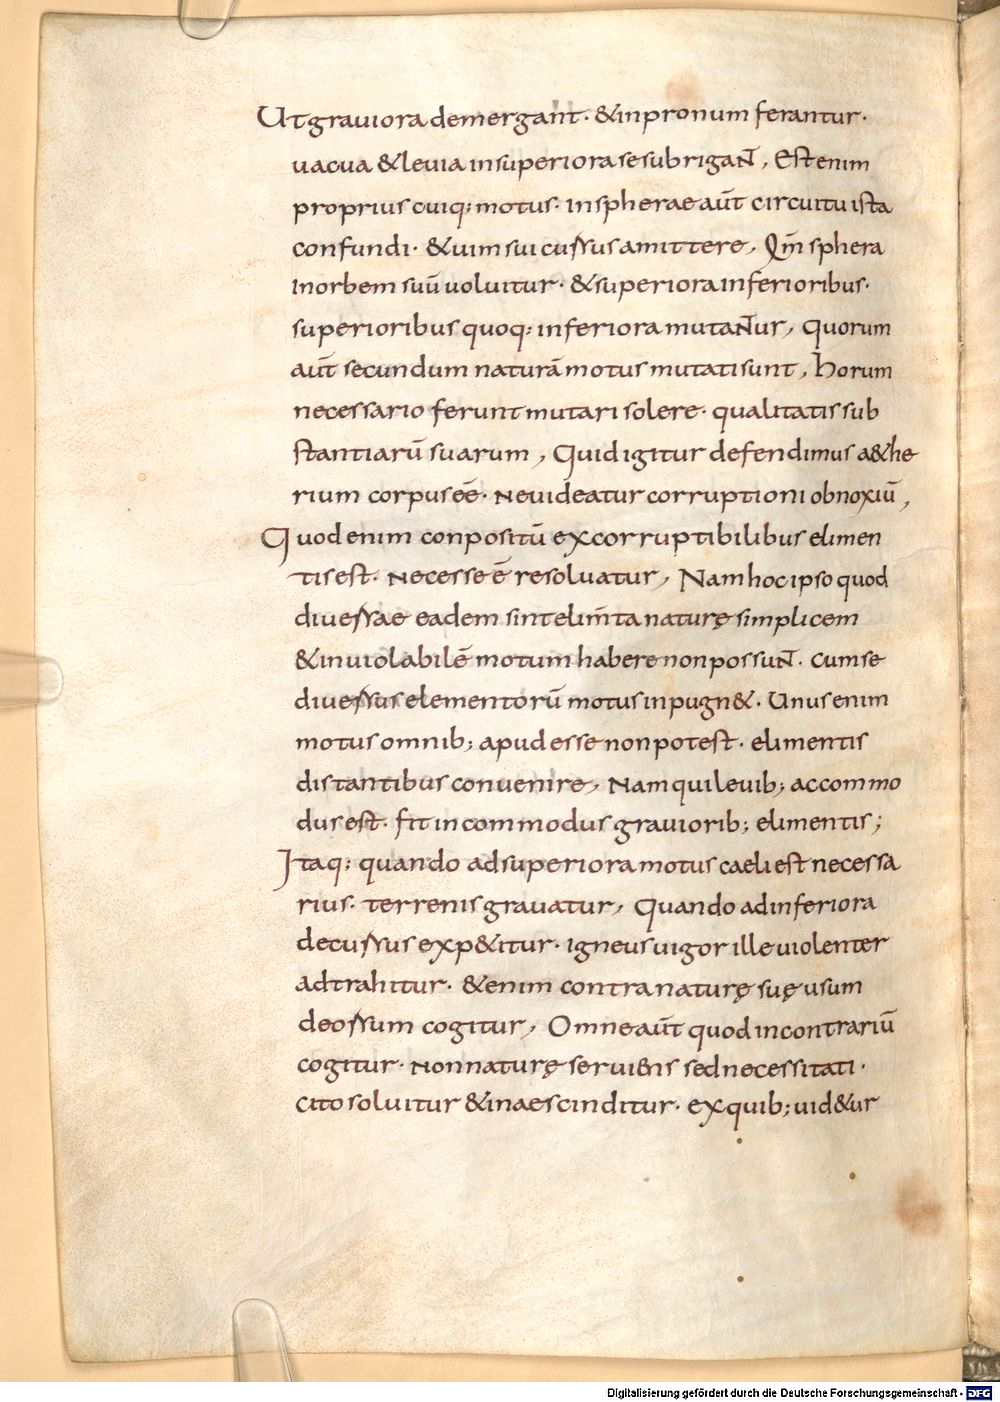 Ut grauiora demergant · & in pronum ferantur ·
uacua & leuia in superiora se subrigaNT, Est enim
proprius cuiq; motus · in spherae aūt circuitu ista
confundi · & uim sui cussus amittere, Qm̄ sphera
in orbem suū uoluitur · & superiora inferioribus ·
superioribus quoq; inferiora mutaNTur, Quorum
aūt secundum naturā motus mutati sunt, horum
necessario ferunt mutari solere · qualitatis sub
stantiarū suarum, Quid igitur defendimus a&he
rium corpus eē · Ne uideatur corruptioni obnoxiū,
Quod enim conpositū ex corruptibilibus elimen
tis est · Necesse ē resoluatur, Nam hoc ipso quod
diuessae eadem sint elim̄ta naturę simplicem
& inuiolabilē motum habere non possuNT · cum se
diuessus elementorū motus inpugn& · Unus enim
motus omnib; apud esse non potest · elimentis
distantibus conuenire, Nam qui leuib; accommo
dus est · fit incommodus grauiorib; elimentis;
Itaq; quando ad superiora motus caeli est necessa
rius · terrenis grauatur, Quando ad inferiora
decussus exp&itur · igneus uigor ille uiolenter
adtrahitur · & enim contra naturę suę usum
deossum cogitur, Omne aūt quod in contrariū
cogitur · Non naturę seruiens sed necessitati ·
cito soluitur & in ae scinditur · ex quib; uid&ur
Digitalisierung gefördert durch die Deutsche Forschungsgemeinschaft - DFG